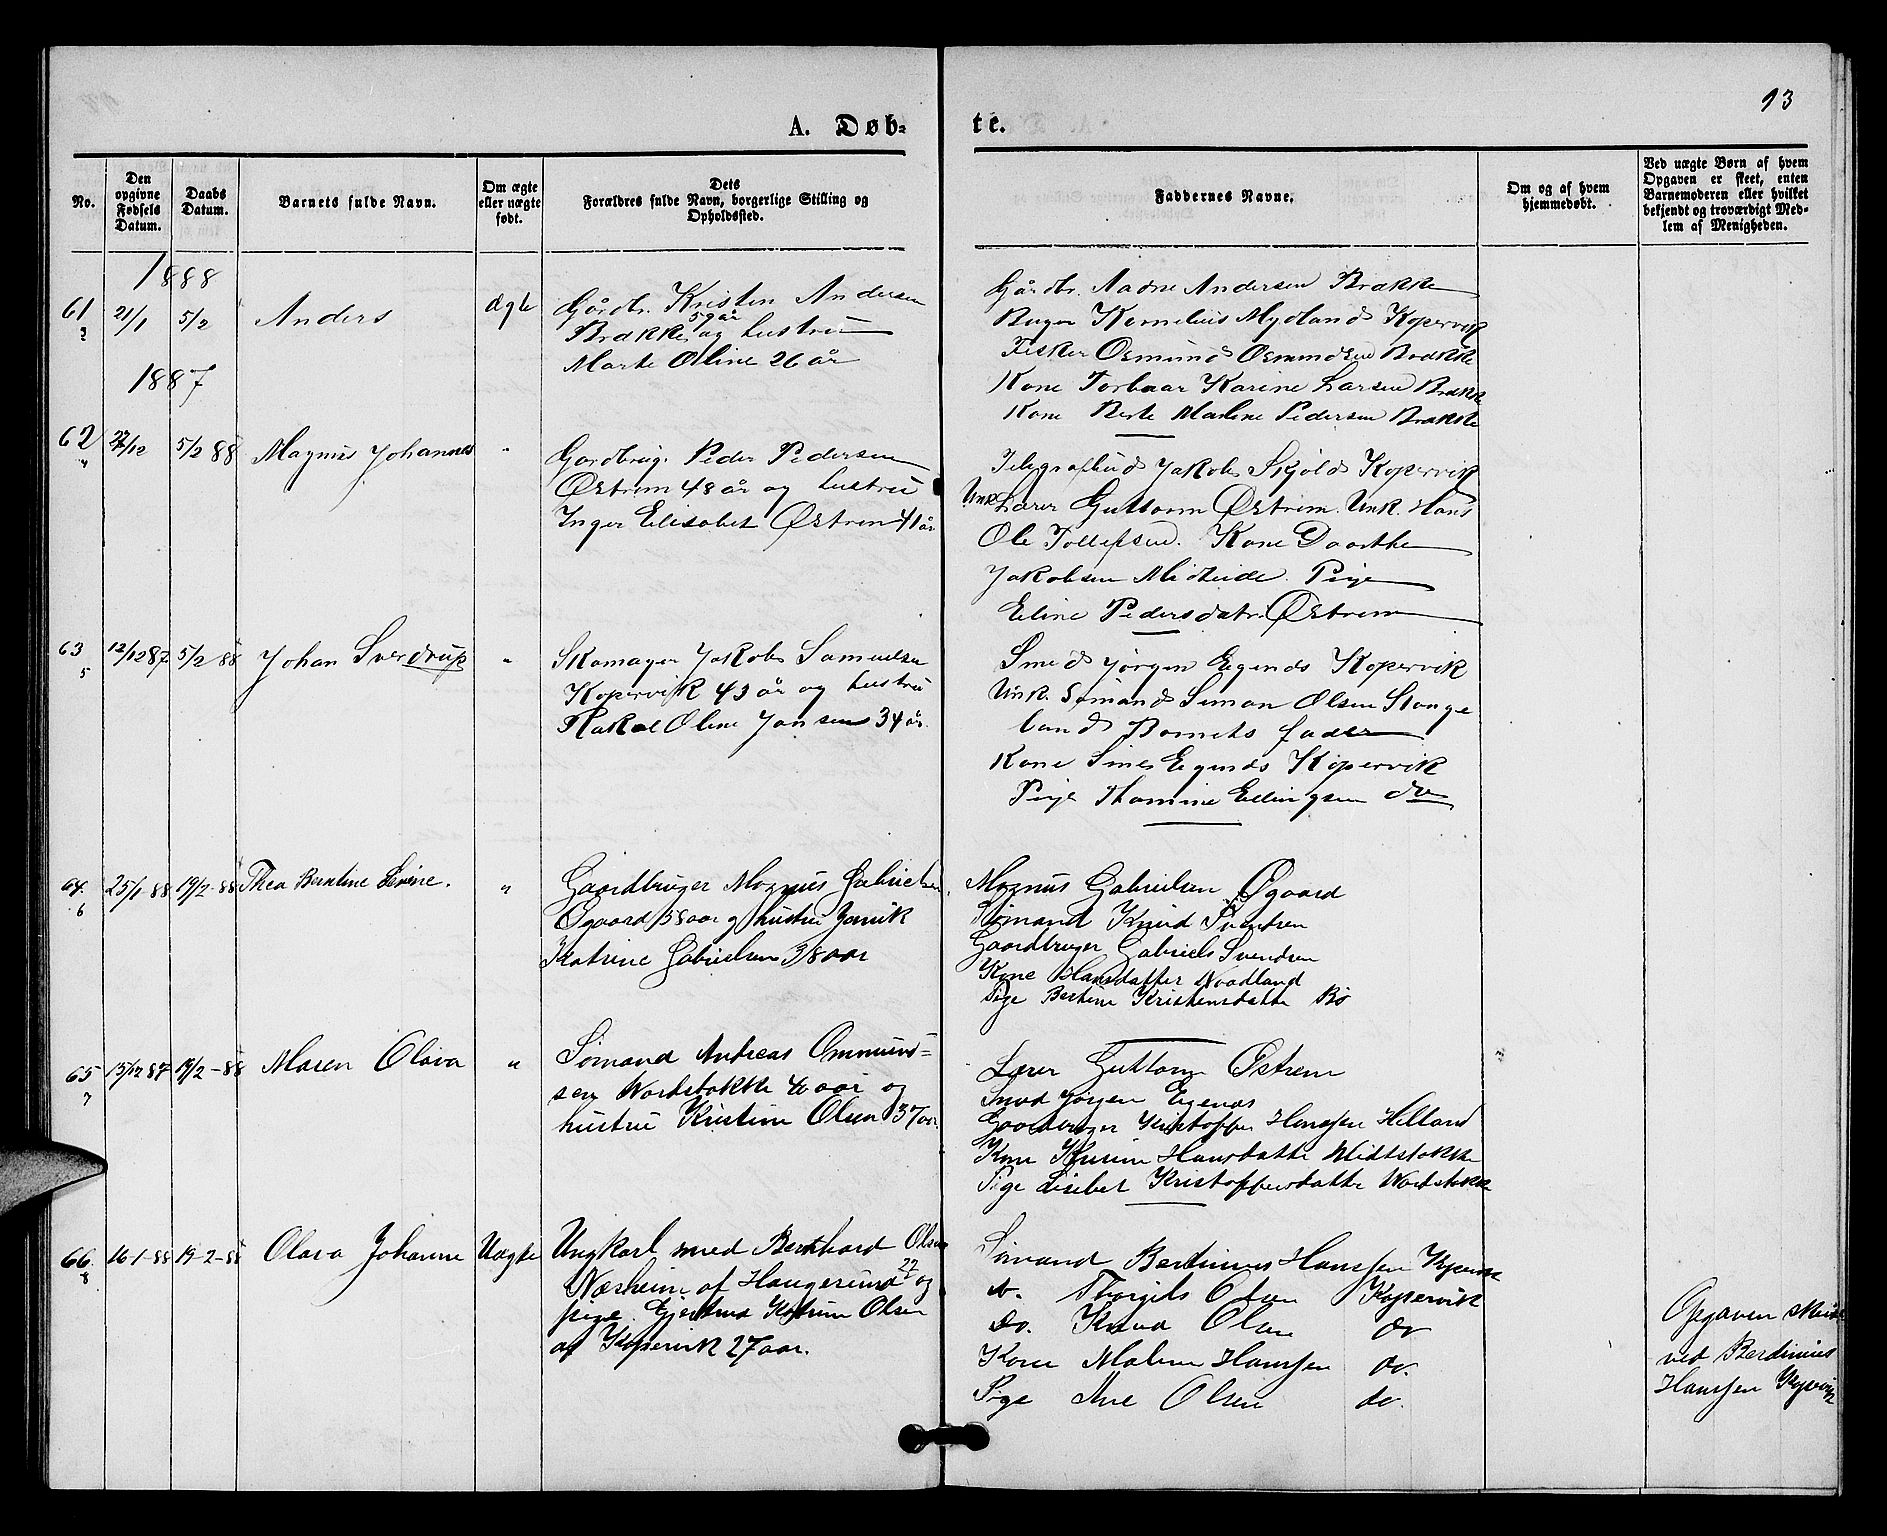 93
A. Døb-
te.
No.
Den
opgivne
Fødsels
Datum.
Daabs
Datum.
Barnets fulde Navn.
Om ægte
eller uægte
født.
Dets
Forældres fulde Navn, borgerlige Stilling og
Opholdssted.
Faddernes Navne.
Om og af hvem
hjemmedøbt.
Ved uægte Børn af hvem
Opgaven er skeet, enten
Barnemoderen eller hvilket
bekjendt og troværdigt Med-
lem af Menigheden.
1888
61
2
21/1
5/2
Anders
ægte
Gårdbr. Kristen Andersen
Brække 59 år og hustru
Marte Oline 26 år
Gårdbr. Aadne Andersen Brække
Kornelius Mydland Kopervik
Fisker Osmund Osmundsen Brække
Kone Torbaar Karine Larsen Brække
Kone Berte Malene Pedersen Brække
1887
62
4
27/12
5/2 88
Magnus Johannes
"
Gardbrug. Peder Pedersen
Østrem 48 år og hustru
Inger Elisabet Østrem 41 år
Telegrafbud Jakob Skjold Kopervik
Lærer Guttorm Østrem. Unk. Hans
Ole Tollefsen. Kone Daarthe
Jakobsen Pige
Eline Pedersdatr. Østrem
63
5
12/12 87
5/2 88
Johan Sverdrup
"
Skomager Jakob Samuelsen
Kopervik 43 år og hustru
Rakel Oline Jansen 34 år.
Smed Jørgen Egends Kopervik
Unk. Sømand Simon Olsen Stange
land Barnets fader
Kone Sines Egends Kopervik
Pige Thomine Ellingsen do
64.
6
25/1-88
19/2-88
Thea Berntine Severine.
"
Gaardbruger Magnus Gabrielsen
Øgaard 38 aar og hustru Jannik
Katrine Gabrielsen 38 aar
Magnus Gabrielsen Øgaard
Sømand Knud Svendsen
Gaardbruger Gabriels Svendsen
Kone Hansdatter Nordland
Pige Bertine Kristensdatter Bø
65
7
15/12 87
19/2-88
Maren Olava
"
Sømand Andreas Ommund=
sen Nordstokke 40 aar og
hustru Kristine Olsen 37 aar.
Lærer Guttorm Østrem
Smed Jørgen Egends
Gaardbruger Kristoffer Hansen Helland
Kone Karine Hansdatter Midtstokke
Pige Lisebet Kristoffersdatter Nordstokke
66.
8
16-1-88
19-2-88
Olava Johanne
Uægte
Ungkarl smed Bernhard Olsen
Næsheim af Haugesund 22 og
pige. Gjertrud Katrine Olsen
af Kopervik 27 aar.
Sømand Berdinius Hanssen Kopervik
do. Thorgils Olsen Kopervik
do. Knud Olsen do
Kone Malene Hanssen do.
Pige Ane Olsen do.
Opgaven skeet
ved Berdinius
Hanssen Kopervik